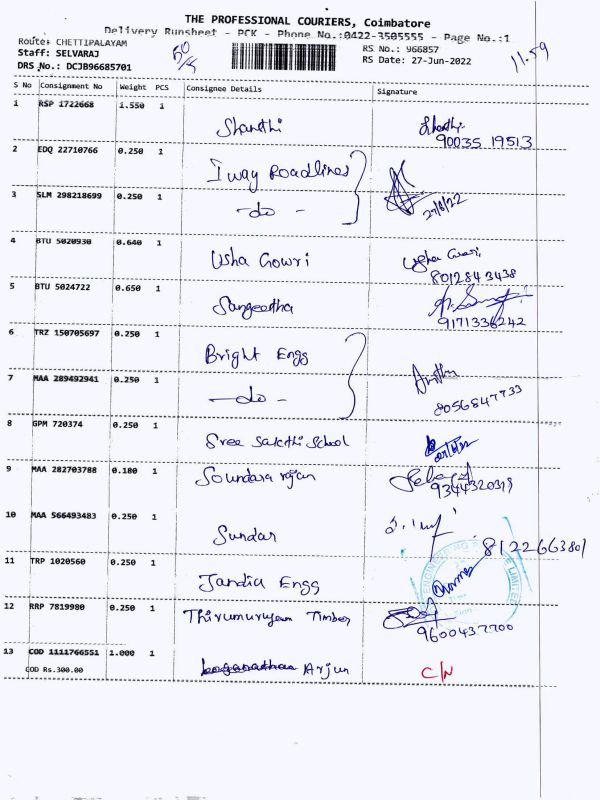 THE PROFESSIONAL COURIERS, Coimbatore
Delivery Runsheet - PCK - Phone No.:0422-3505555 - Page No.:1
Route: CHETTIPALAYAM
Staff: SELVARAJ
DRS No.: DCJB96685701
RS No.: 966857
RS Date: 27-Jun-2022
11.59
S No Consignment No Weight PCS Consignee Details Signature
1 RSP 1722668 1.550 1 Shanthi Shanthi
90035 19513
2 EDQ 22710766 0.250 1 I way Roadlines
3 SLM 298218699 0.250 1 -do- 27/6/22
4 BTU 5020930 0.640 1 Usha Gowri Usha Gowri
8012843438
5 BTU 5024722 0.650 1 Sangeetha
9171336242
6 TRZ 150705697 0.250 1 Bright Engs
7 MAA 289492941 0.250 1 -do-
8056847733
8 GPM 720374 0.250 1 Sree Sakthi School
9 MAA 282703788 0.180 1 Soundara rajan
9344320319
10 MAA 566493483 0.250 1 Sundar
8122663801
11 TRP 1020560 0.250 1 Jandia Engs
12 RRP 7819980 0.250 1 Thirumurugan Timber
9600437700
13 COD 1111766551 1.000 1 Arjun C/N
COD Rs.300.00